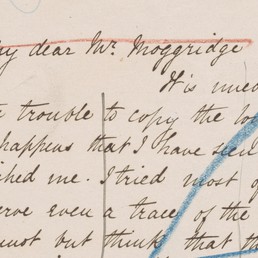 my dear Mr. Moggridge
It is
trouble to copy the
happens that I have seen
me. I tried most of
even a trace of the
but think that